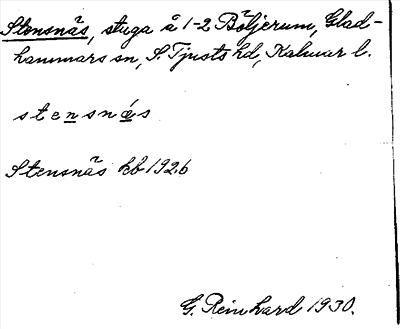 Stensnäs, stuga å 1-2 Böljerum, Glad-
hammars sn, S. Tjusts hd, Kalmar l.
stensnæ̀s
Stensnäs kb 1926
G. Reinhard 1930.